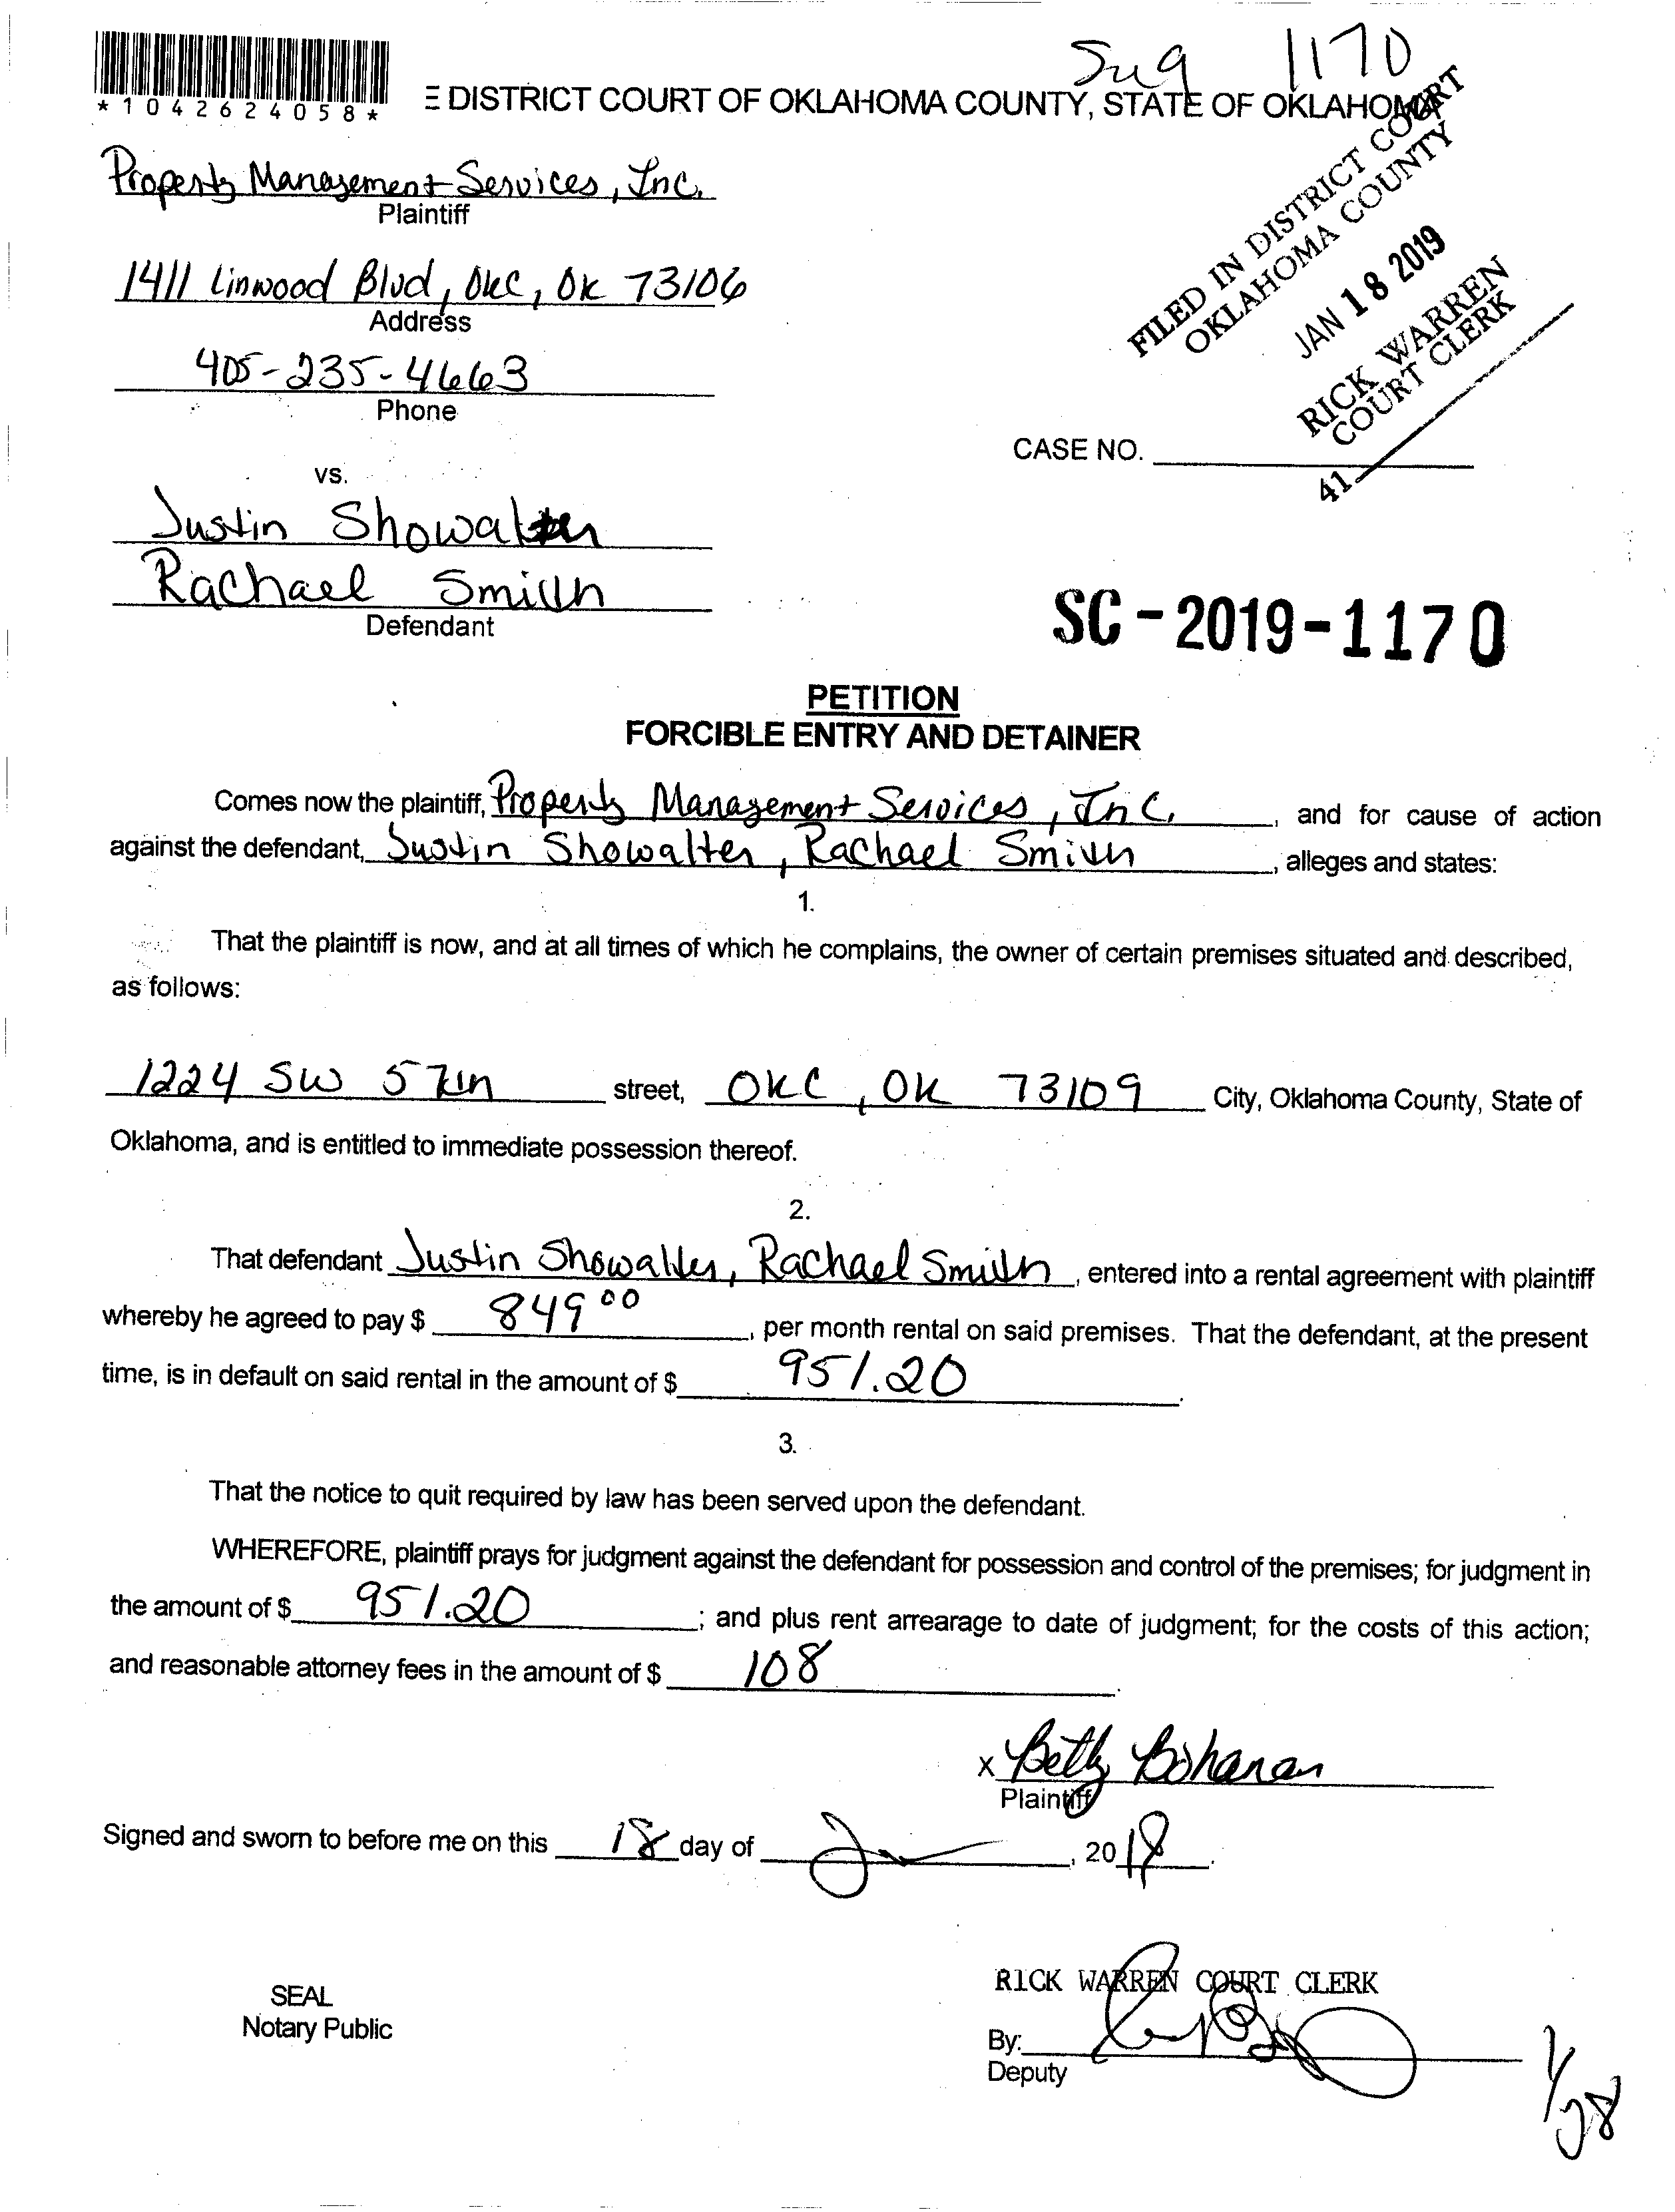 Sug 1170
*1042624058*
E DISTRICT COURT OF OKLAHOMA COUNTY, STATE OF OKLAHOMA
FILED IN DISTRICT COURT
OKLAHOMA COUNTY
JAN 18 2019
RICK WARREN
COURT CLERK
41
Property Management Services, Inc.
Plaintiff
1411 Linwood Blvd, OKC, OK 73106
Address
405-235-4663
Phone
CASE NO.
vs.
Justin Showalter
Rachael Smith
Defendant
SC-2019-1170
PETITION
FORCIBLE ENTRY AND DETAINER
Comes now the plaintiff, Property Management Services, Inc., and for cause of action
against the defendant, Justin Showalter, Rachael Smith, alleges and states:
1.
That the plaintiff is now, and at all times of which he complains, the owner of certain premises situated and described,
as follows:
1224 SW 57th street, OKC, OK 73109 City, Oklahoma County, State of
Oklahoma, and is entitled to immediate possession thereof.
2.
That defendant Justin Showalter, Rachael Smith, entered into a rental agreement with plaintiff
whereby he agreed to pay $ 849 00, per month rental on said premises. That the defendant, at the present
time, is in default on said rental in the amount of $ 951.20.
3.
That the notice to quit required by law has been served upon the defendant.
WHEREFORE, plaintiff prays for judgment against the defendant for possession and control of the premises; for judgment in
the amount of $ 951.20; and plus rent arrearage to date of judgment; for the costs of this action;
and reasonable attorney fees in the amount of $ 108.
x Betty Bohanan
Plaintiff
Signed and sworn to before me on this 18 day of , 20
SEAL
Notary Public
RICK WARREN COURT CLERK
By:
Deputy
1/28